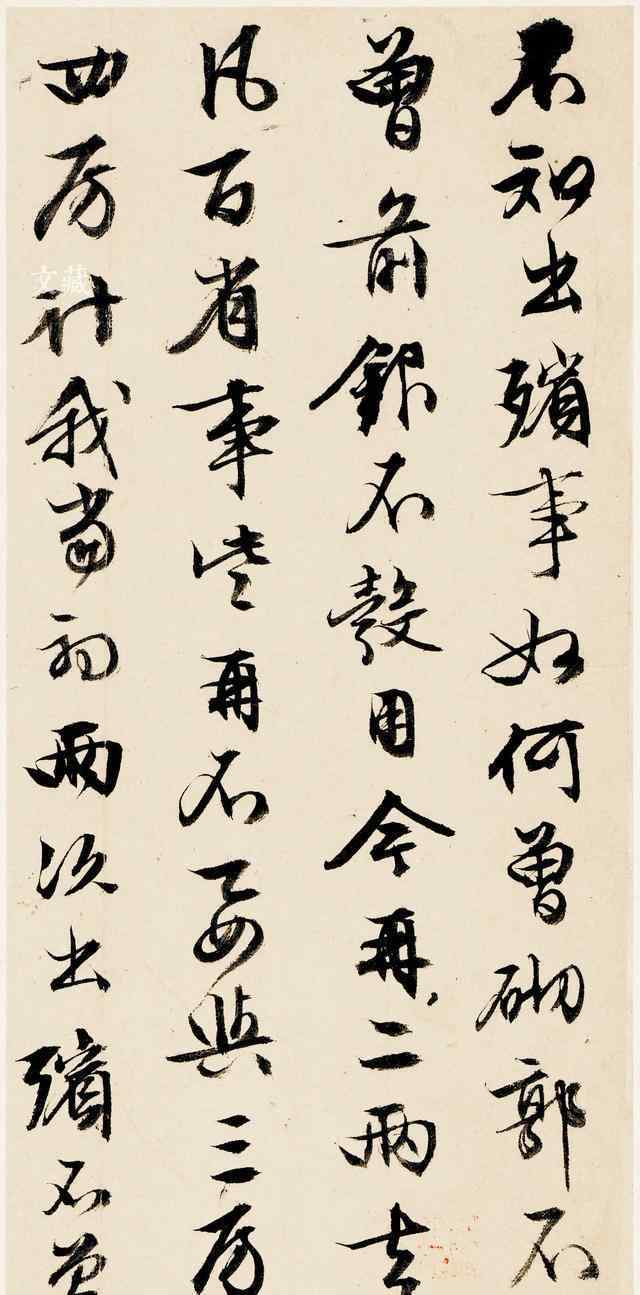 不知出殯事如何曾砌郭不
曾前銀不彀用今再二兩去
凡百省事些再不要與三房
四房計我當初兩次出殯不曾
文藏